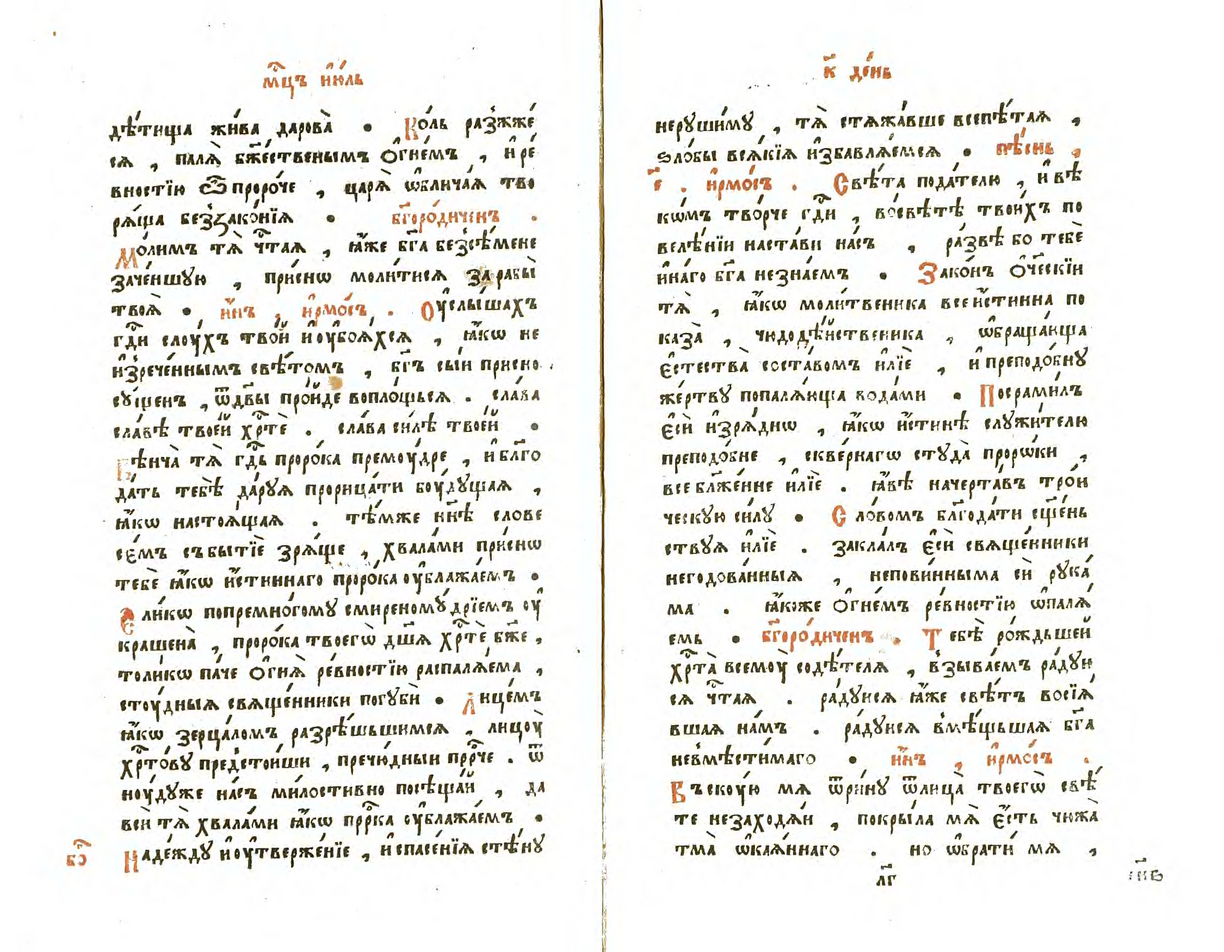 мц҃ъ і҆ю́ль
дѣ́тища жи́ва дарова̀ . Ко́ль разже́же
сѧ , палѧ̀ бж҃е́ственымъ ѻ҆гне́мъ , и҆ ре́
вностїю ѿ проро́че , царѧ̀ ѡ҆блича́ѧ тво
рѧ́ща беззако́нїѧ . бг҃оро́диченъ .
Мо́лимъ тѧ̀ чт҃аѧ , ꙗ҆́же бг҃а безсѣ́мене
заче́ншую , при́снѡ моли́тисѧ за рабы̀
твоѧ̀ . и҆́нъ , і҆рмо́съ , . Оу҆слы́шахъ
гд҃и слꙋ́хъ тво́й и҆ оу҆боѧ́хсѧ , ꙗ҆́кѡ не
и҆зрече́ннымъ свѣ́томъ , бг҃ъ сы́и присно
сꙋ́щенъ , ѿ дв҃ы про́йде воплощьсѧ . сла́ва
сла́вѣ твое́й хрт҃ѐ . сла́ва си́лѣ твое́й .
Вѣнча̀ тѧ̀ гд҃ь проро́ка премꙋ́дре , и҆ блг҃о
да́ть тебѣ̀ да́рꙋѧ прорица́ти бꙋ́дꙋщаѧ ,
ꙗ҆́кѡ настоѧ́щаѧ . тѣ́мже нн҃ѣ слове
се́мъ събытїѐ зрѧ́ще , хвала́ми при́снѡ
тебѐ ꙗ҆́кѡ и҆́стиннаго проро́ка оу҆блажа́емъ .
Е҆ли́кѡ попремно́гомꙋ смиреномꙋ́дрїемъ оу҆
кра́шена̀ , проро́ка твоегѡ̀ дш҃а̀ хрт҃ѐ бж҃е ,
толи́кѡ па́че ѻ҆гнѧ̀ ре́вностїю распалѧ́ема ,
стꙋ́дныѧ свѧще́нники погꙋбѝ . Лице́мъ
ꙗ҆́кѡ зерца́ломъ разрѣ́шьшимсѧ , лицꙋ̀
хрт҃о́вꙋ предстои́ши , пречю́дныи прр҃че . ѿ
нꙋ́дꙋже на́съ ми́лостивно посѣща́й , да
вси̏ тѧ̀ хвала́ми ꙗ҆́кѡ прр҃ка оу҆блажа́емъ .
бо҃ Наде́ждꙋ и҆ оу҆твержде́нїе , и҆ спасе́нїѧ стѣ́нꙋ
к҃ де́нь
нерꙋши́мꙋ , тѧ̀ стѧжа́вше всепѣ́таѧ ,
ѕло́бы всѧ́кїѧ и҆збавлѧ́емсѧ . пѣ́снь ,
є҃ . і҆рмо́съ . Свѣ́та пода́телю , и҆ вѣ́
кѡмъ тво́рче гд҃и , восвѣ́тѣ твои́хъ по
велѣ́нїи наста́ви на́съ , ра́звѣ бо тебѐ
и҆на́го бг҃а не зна́емъ . Зако́нъ ѻ҆те́ческїи
тѧ̀ , ꙗ҆́кѡ моли́твеника все и҆́стинна по
каза̀ , чюдодѣ́йственика , ѡ҆браща́юща
є҆стества̀ соста́вомъ и҆лїѐ , и҆ преподо́бнꙋ
же́ртвꙋ попалѧ́юща вода́ми . Посрами́лъ
є҆сѝ и҆зрѧ́днѡ , ꙗ҆́кѡ и҆́стинѣ слꙋжи́телю
преподо́бне , скве́рнагѡ стꙋда̀ проро́ки ,
все блаже́нне и҆лїѐ . ꙗ҆́вѣ начерта́въ трои́
ческꙋю си́лꙋ . Сло́вомъ бл҃года́ти сщ҃е́нь
ствꙋѧ и҆лїѐ . закла́лъ є҆сѝ свѧще́нники
негодова́нныѧ , непови́нныма си́ рꙋка́
ма . ꙗ҆́коже ѻ҆гне́мъ ре́вностїю ѡ҆палѧ́
емь . бг҃оро́диченъ . Тебѣ̀ ро́ждьшей
хрт҃а̀ всемꙋ̀ содѣ́телѧ , взыва́емъ ра́дꙋи
сѧ чт҃аѧ . ра́дꙋисѧ ꙗ҆́же свѣ́тъ восїѧ́
вшаѧ на́мъ . ра́дꙋисѧ вмѣ́щьшаѧ бг҃а
невмѣсти́маго . и҆́нъ , і҆рмо́съ .
Въскꙋ́ю мѧ̀ ѿри́нꙋ ѿ лица̀ твоегѡ̀ свѣ́
те незаходѧ́и , покры́ла мѧ̀ є҆́сть чюжа̀
тма̀ ѡ҆каѧ́ннаго . но ѡ҆брати́ мѧ ,
лг